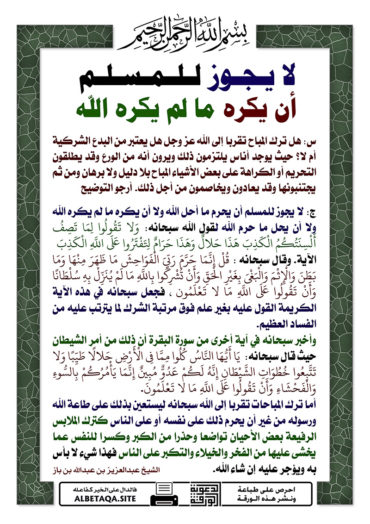 بسم الله الرحمن الرحيم
لا يجوز للمسلم
أن يكره ما لم يكره الله
س: هل ترك المباح تقربا إلى الله عز وجل هل يعتبر من البدع الشركية
أم لا؟ حيث يوجد أناس يلتزمون ذلك ويرون أنه من الورع وقد يطلقون
التحريم أو الكراهة على بعض الأشياء المباح بلا دليل ولا برهان ومن ثم
يجتنبونها وقد يعادون ويخاصمون من أجل ذلك. أرجو التوضيح
ج: لا يجوز للمسلم أن يحرم ما أحل الله ولا أن يكره ما لم يكره الله
ولا أن يحل ما حرم الله لقول الله سبحانه: وَلَا تَقُولُوا لِمَا تَصِفُ
أَلْسِنَتُكُمُ الْكَذِبَ هَذَا حَلَالٌ وَهَذَا حَرَامٌ لِتَفْتَرُوا عَلَى اللَّهِ الْكَذِبَ
الآية. وقال سبحانه : قُلْ إِنَّمَا حَرَّمَ رَبِّيَ الْفَوَاحِشَ مَا ظَهَرَ مِنْهَا وَمَا
بَطَنَ وَالْإِثْمَ وَالْبَغْيَ بِغَيْرِ الْحَقِّ وَأَنْ تُشْرِكُوا بِاللَّهِ مَا لَمْ يُنَزِّلْ بِهِ سُلْطَانًا
وَأَنْ تَقُولُوا عَلَى اللَّهِ مَا لَا تَعْلَمُونَ . فجعل سبحانه في هذه الآية
الكريمة القول عليه بغير علم فوق مرتبة الشرك لما يترتب عليه من
الفساد العظيم.
وأخبر سبحانه في آية أخرى من سورة البقرة أن ذلك من أمر الشيطان
حيث قال سبحانه: يَا أَيُّهَا النَّاسُ كُلُوا مِمَّا فِي الْأَرْضِ حَلَالًا طَيِّبًا وَلَا
تَتَّبِعُوا خُطُوَاتِ الشَّيْطَانِ إِنَّهُ لَكُمْ عَدُوٌّ مُبِينٌ إِنَّمَا يَأْمُرُكُمْ بِالسُّوءِ
وَالْفَحْشَاءِ وَأَنْ تَقُولُوا عَلَى اللَّهِ مَا لَا تَعْلَمُونَ.
أما ترك المباحات تقربا إلى الله سبحانه ليستعين بذلك على طاعة الله
ورسوله من غير أن يحرم ذلك على نفسه أو على الناس كترك الملابس
الرفيعة بعض الأحيان تواضعا وحذرا من الكبر وكسرا للنفس عما
يخشى عليها من الفخر والخيلاء والتكبر على الناس فهذا شيء لا بأس
به ويؤجر عليه إن شاء الله. الشيخ عبدالعزيز بن عبدالله بن باز
احرص على طباعة
ونشر هذه الورقة
الورقة الدعوية
فالدال على الخير كفاعله
ALBETAQA.SITE